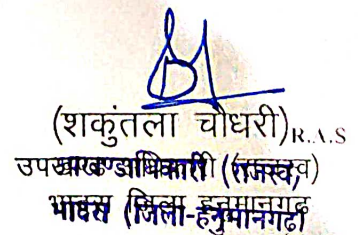 (शकुंतला चौधरी) R.A.S
उपखण्ड अधिकारी (राजस्व)
भादरा (जिला-हनुमानगढ)